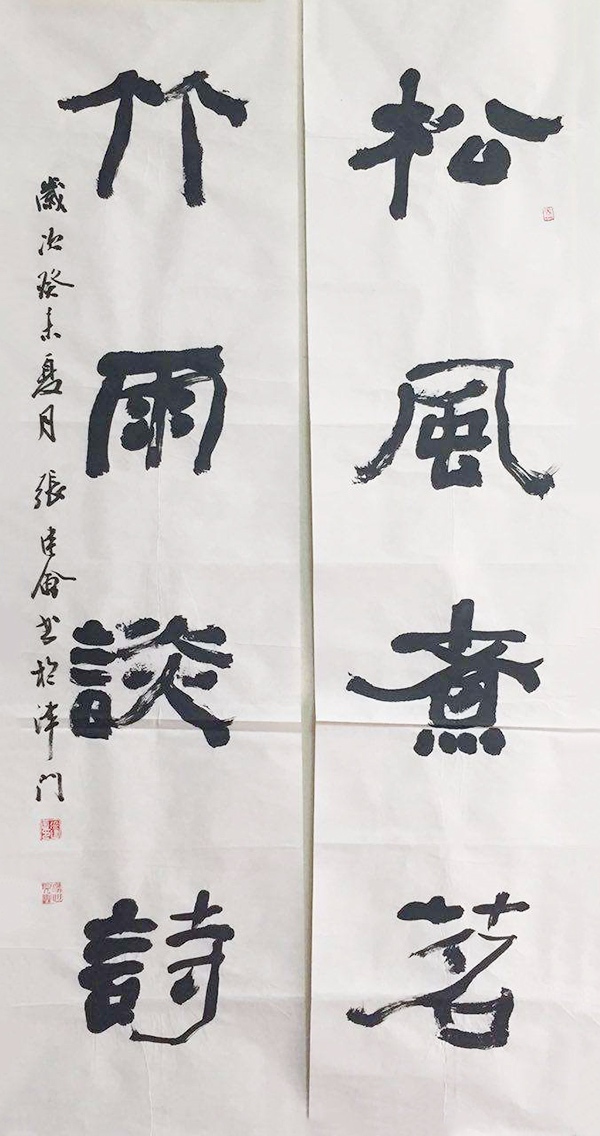 松風煮茗
竹雨談詩
歲次癸未夏月 張建會書於津门